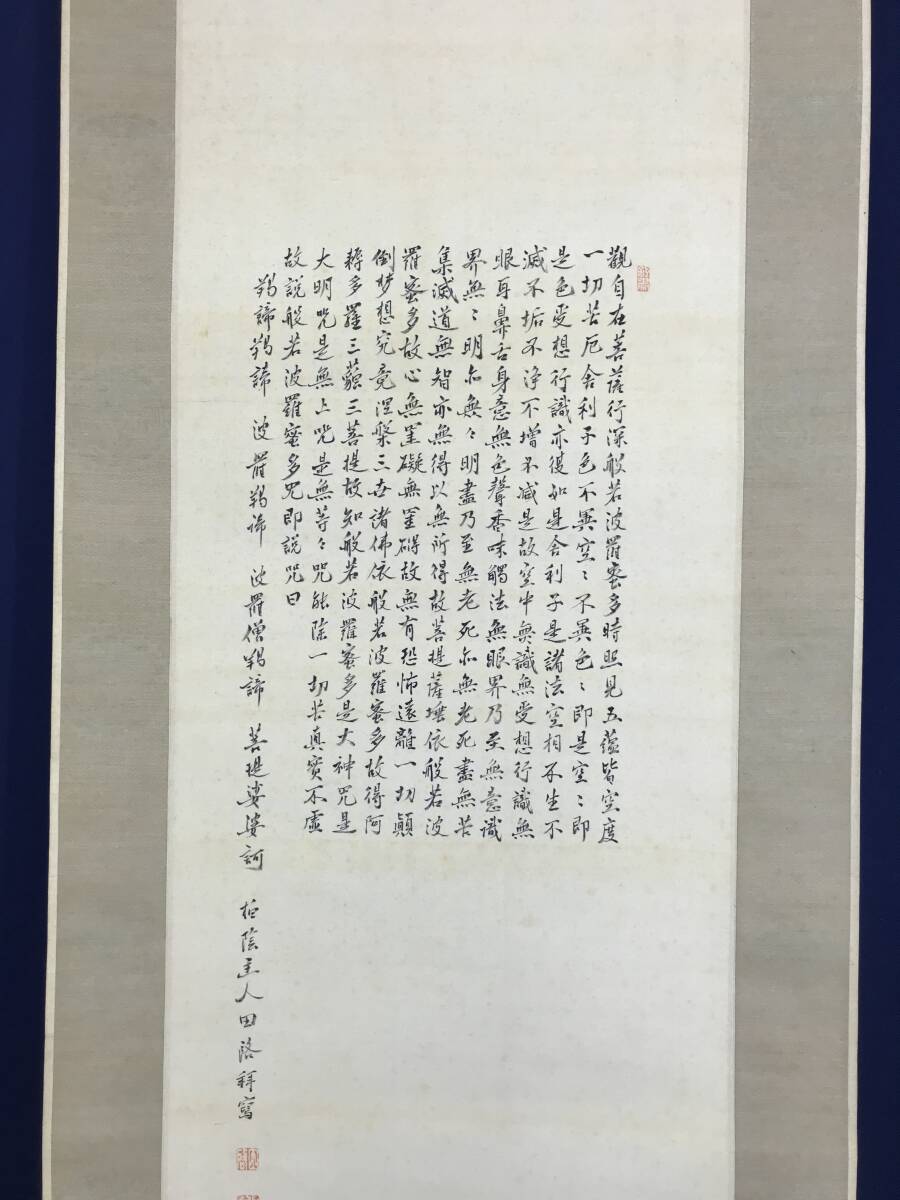 觀自在菩薩行深般若波羅蜜多時照見五蘊皆空度
一切苦厄舍利子色不異空〻不異色〻即是空〻即
是色受想行識亦復如是舍利子是諸法空相不生不
滅不垢不浄不増不減是故空中無識無受想行識無
眼耳鼻舌身意無色聲香味觸法無眼界乃至無意識
界無〻明亦無々明盡乃至無老死亦無老死盡無苦
集滅道無智亦無得以無所得故菩提薩埵依般若波
羅蜜多故心無罣礙無罣礙故無有恐怖遠離一切顛
倒夢想究竟涅槃三世諸佛依般若波羅蜜多故得阿
耨多羅三藐三菩提故知般若波羅蜜多是大神咒是
大明咒是無上咒是無等々咒能除一切苦真実不虛
故説般若波羅蜜多咒即説咒曰
羯諦羯諦 波羅羯諦 波羅僧羯諦 菩提娑婆訶 柏陰主人田 拜寫